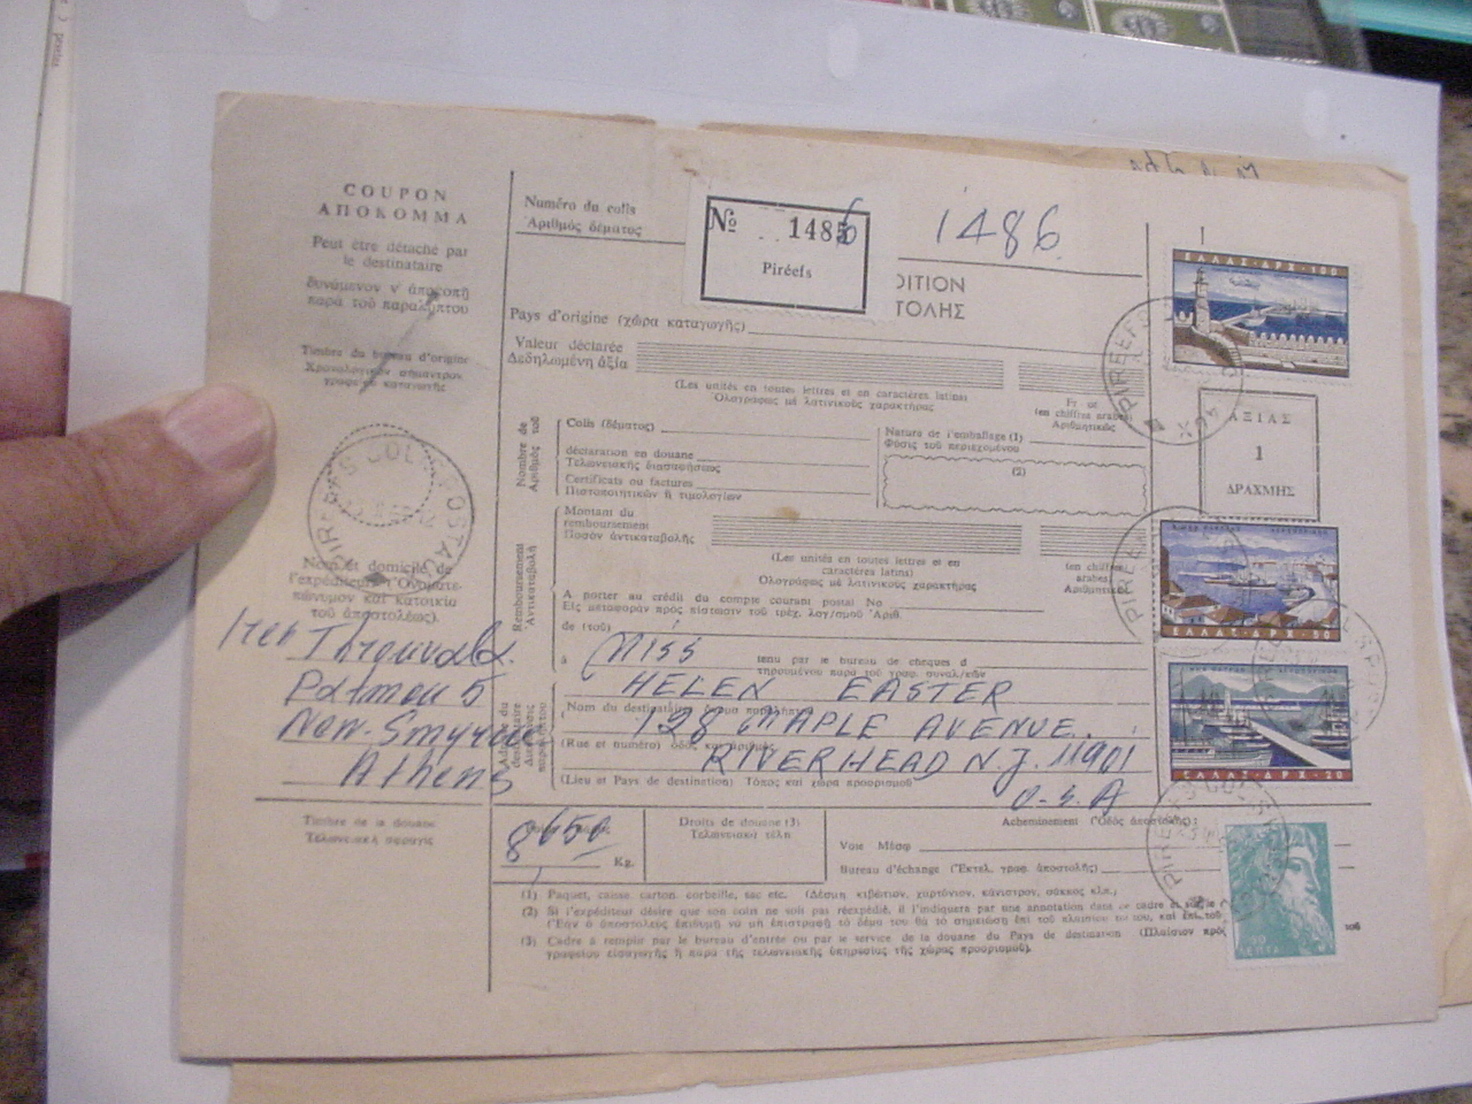 COUPON
ΑΠΟΚΟΜΜΑ
Peut être détaché par
le destinataire
δυνάμενον ν' ἀποκοπῇ
παρὰ τοῦ παραλήπτου
Timbre du bureau d'origine
Χρονολογικὸν σήμαντρον
γραφείου καταγωγῆς
PIREEFS COLIS POSTAUX
Nom et domicile de
l'expéditeur
πώνυμον καὶ κατοικία
τοῦ ἀποστολέως).
Patmou 5
New-Smyrni
Athens
Timbre de la douane
Τελωνειακὴ σφραγὶς
Numéro du colis
Ἀριθμὸς δέματος
№ 1486
Piréefs
1486
DITION
ΤΟΛΗΣ
Pays d'origine (χώρα καταγωγῆς)
Valeur déclarée
Δεδηλωμένη ἀξία
(Les unités en toutes lettres et en caractères latins)
Ὁλογράφως μὲ λατινικοὺς χαρακτῆρας
Fr or
(en chiffres arabes)
Ἀριθμητικῶς
Nombre de
Ἀριθμὸς τοῦ
Colis (δέματος)
déclaration en douane
Τελωνειακῆς διασαφήσεως
Certificats ou factures
Πιστοποιητικῶν ἢ τιμολογίων
Nature de l'emballage (1)
Φύσις τοῦ περιεχομένου
(2)
Remboursement
Ἀντικαταβολὴ
Montant du
remboursement
Ποσὸν ἀντικαταβολῆς
(Les unités en toutes lettres et en
caractères latins)
Ὁλογράφως μὲ λατινικοὺς χαρακτῆρας
(en chiffres
arabes)
Ἀριθμητικῶς
A porter au crédit du compte courant postal No
Εἰς μεταφορὰν πρὸς πίστωσιν τοῦ τρέχ. λογ/σμοῦ Ἀριθ.
de (τοῦ)
à Miss tenu par le bureau de chèques d
τηρουμένου παρὰ τοῦ γραφ. συναλ/κῶν
HELEN EASTER
Nom du destinataire
128 MAPLE AVENUE.
(Rue et numéro) ὁδὸς καὶ ἀριθμὸς
RIVERHEAD N.J. 11901
(Lieu et Pays de destination) Τόπος καὶ χώρα προορισμοῦ
U.S.A
8650
Kg.
Droits de douane (3)
Τελωνειακὰ τέλη
Acheminement (Ὁδὸς ἀποστολῆς):
Voie Μέσῳ
Bureau d'échange (Ἐκτελ. γραφ. ἀποστολῆς)
(1) Paquet, caisse carton corbeille, sac etc. (Δέσμη κιβώτιον, χαρτόνιον, κάνιστρον, σάκκος κλπ.,
(2) Si l'expéditeur désire que son colis ne soit pas réexpédié, il l'indiquera par une annotation dans ce cadre et sur le
(Ἐὰν ὁ ἀποστολεὺς ἐπιθυμῇ νὰ μὴ ἐπιστραφῇ τὸ δέμα του θὰ τὸ σημειώσῃ ἐπὶ τοῦ πλαισίου τούτου, καὶ ἐπὶ τοῦ
(3) Cadre à remplir par le bureau d'entrée ou par le service de la douane du Pays de destination (Πλαίσιον πρὸς
γραφείου εἰσαγωγῆς ἢ παρὰ τῆς τελωνειακῆς ὑπηρεσίας τῆς χώρας προορισμοῦ).
ΕΛΛΑΣ·ΔΡΧ·100
ΑΞΙΑΣ
1
ΔΡΑΧΜΗΣ
ΕΛΛΑΣ·ΔΡΧ·50
ΕΛΛΑΣ·ΔΡΧ·20
ΛΕΠΤΑ